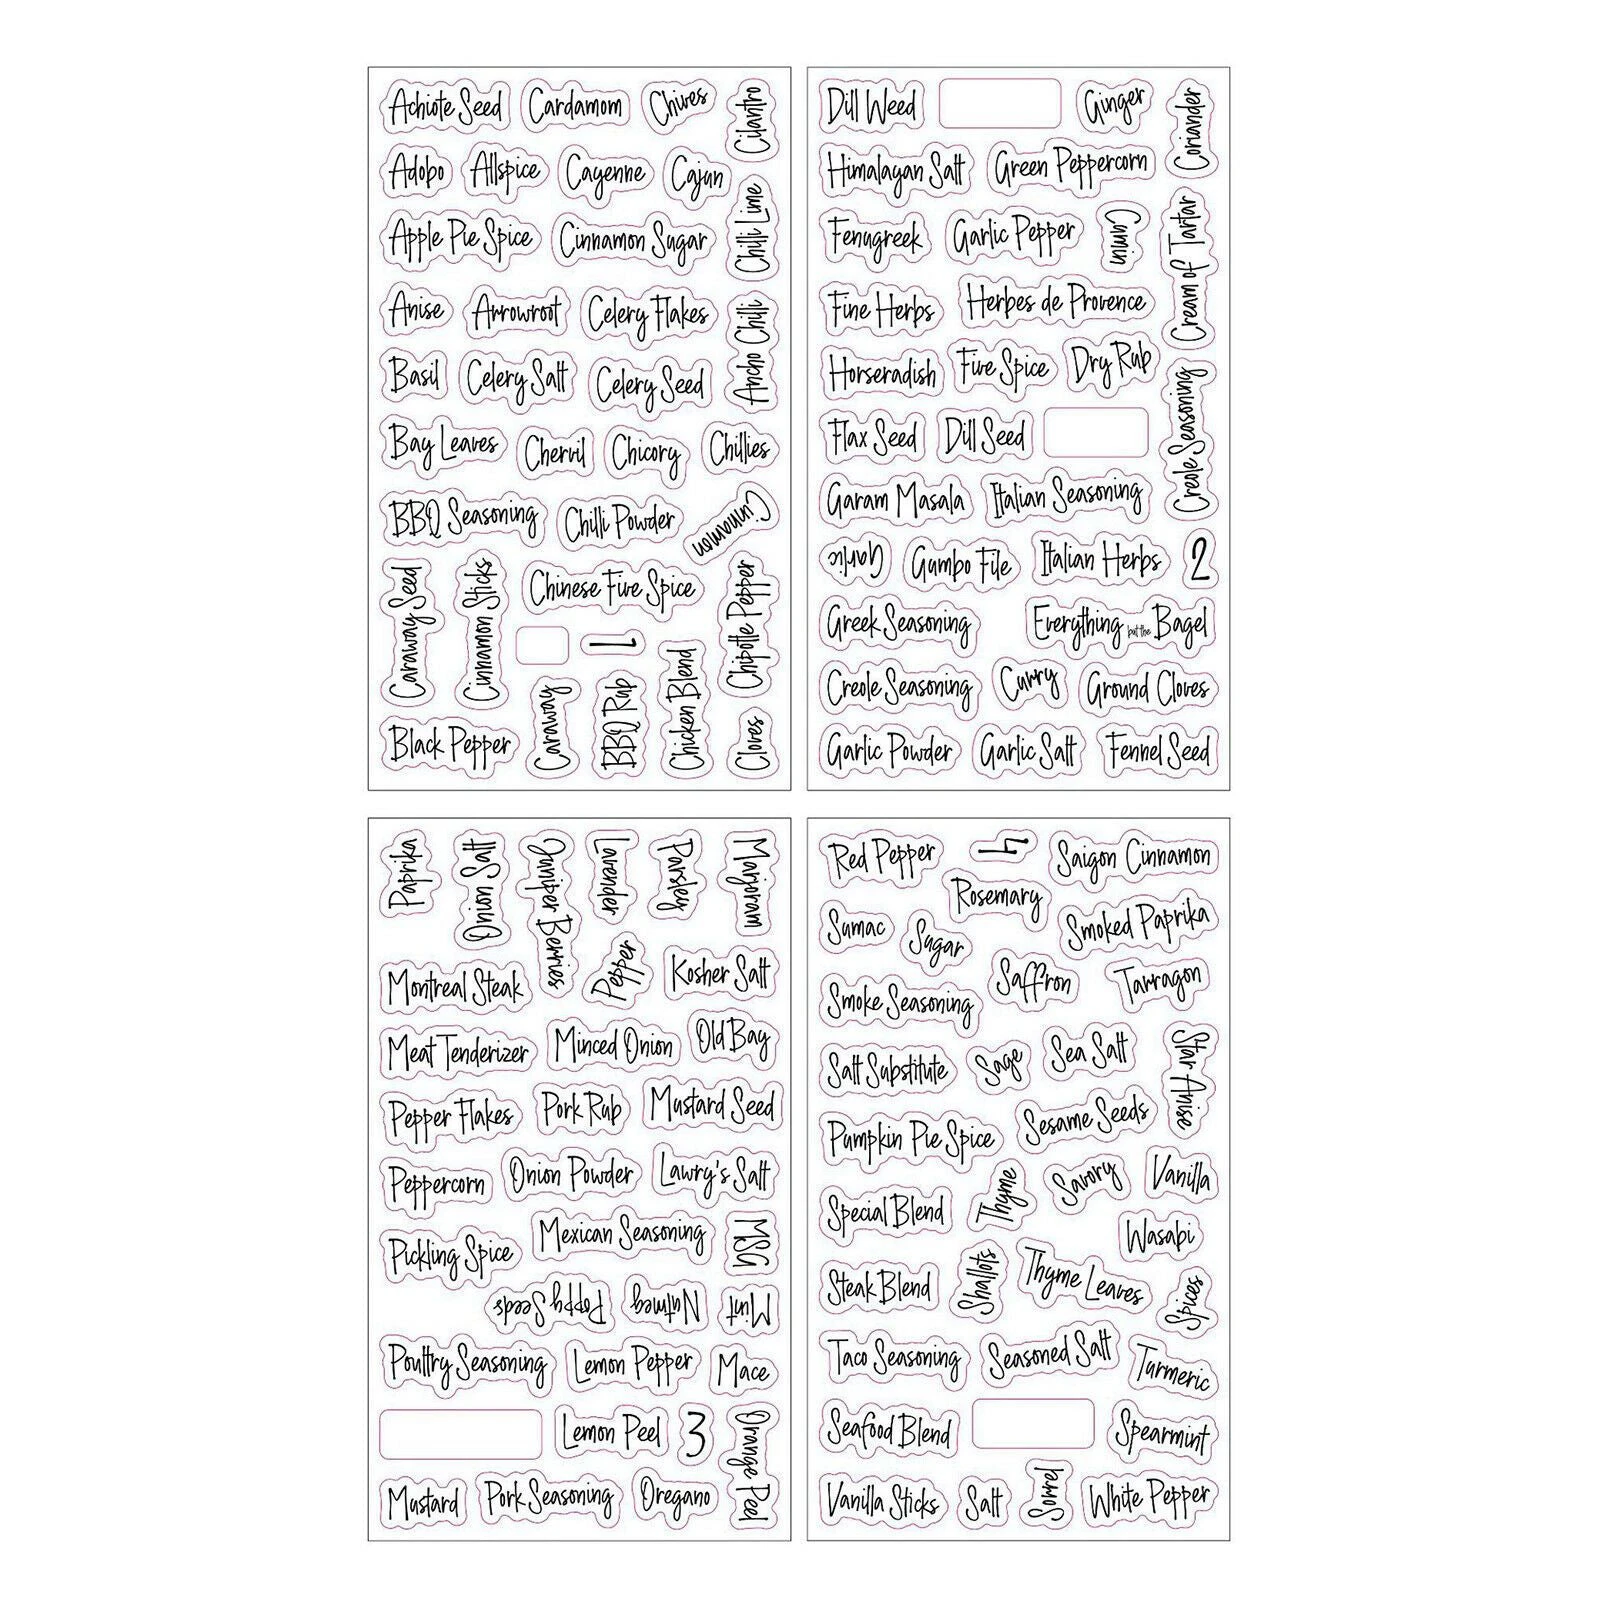 Achiote Seed
Cardamom
Chives
Cilantro
Adobo
Allspice
Cayenne
Cajun
Apple Pie Spice
Cinnamon Sugar
Chilli Lime
Anise
Arrowroot
Celery Flakes
Ancho Chilli
Basil
Celery Salt
Celery Seed
Bay Leaves
Chervil
Chicory
Chillies
BBQ Seasoning
Chilli Powder
Cinnamon
Caraway Seed
Cinnamon Sticks
Chinese Five Spice
Chipotle Pepper
1
Black Pepper
Caraway
BBQ Rub
Chicken Blend
Cloves
Dill Weed
Ginger
Coriander
Himalayan Salt
Green Peppercorn
Fenugreek
Garlic Pepper
Cumin
Cream of Tartar
Fine Herbs
Herbes de Provence
Horseradish
Five Spice
Dry Rub
Creale Seasoning
Flax Seed
Dill Seed
Garam Masala
Italian Seasoning
Garlic
Gumbo File
Italian Herbs
2
Greek Seasoning
Everything but the Bagel
Creole Seasoning
Curry
Ground Cloves
Garlic Powder
Garlic Salt
Fennel Seed
Paprika
Onion Salt
Juniper Berries
Lavender
Parsley
Marjoram
Montreal Steak
Pepper
Kosher Salt
Meat Tenderizer
Minced Onion
Old Bay
Pepper Flakes
Pork Rub
Mustard Seed
Peppercorn
Onion Powder
Lawry's Salt
Pickling Spice
Mexican Seasoning
MSG
Poppy Seeds
Nutmeg
Mint
Poultry Seasoning
Lemon Pepper
Mace
Lemon Peel
3
Orange Peel
Mustard
Pork Seasoning
Oregano
Red Pepper
4
Saigon Cinnamon
Rosemary
Sumac
Sugar
Smoked Paprika
Saffron
Tarragon
Smoke Seasoning
Salt Substitute
Sage
Sea Salt
Star Anise
Pumpkin Pie Spice
Sesame Seeds
Special Blend
Thyme
Savory
Vanilla
Wasabi
Steak Blend
Shallots
Thyme Leaves
Spices
Taco Seasoning
Seasoned Salt
Turmeric
Seafood Blend
Spearmint
Vanilla Sticks
Salt
Sorrel
White Pepper